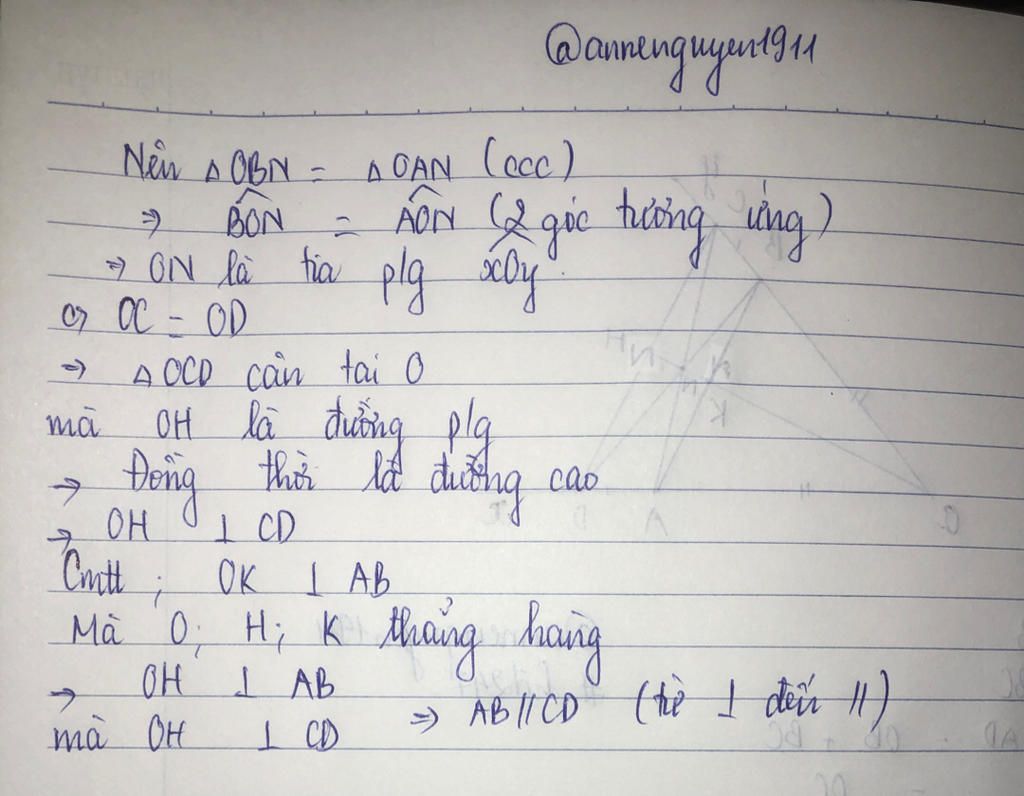 @annenguyen1911
Nên △OBN = △OAN (ccc)
⇒ BÔN = AÔN (2 góc tương ứng)
⇒ ON là tia p/g xOy.
c, OC = OD
⇒ △OCD cân tại O
mà OH là đường p/g
→ Đồng thời là đường cao
→ OH ⊥ CD
Cmtt ; OK ⊥ AB
Mà O; H; K thẳng hàng
→ OH ⊥ AB
mà OH ⊥ CD ⇒ AB//CD (từ ⊥ đến //)